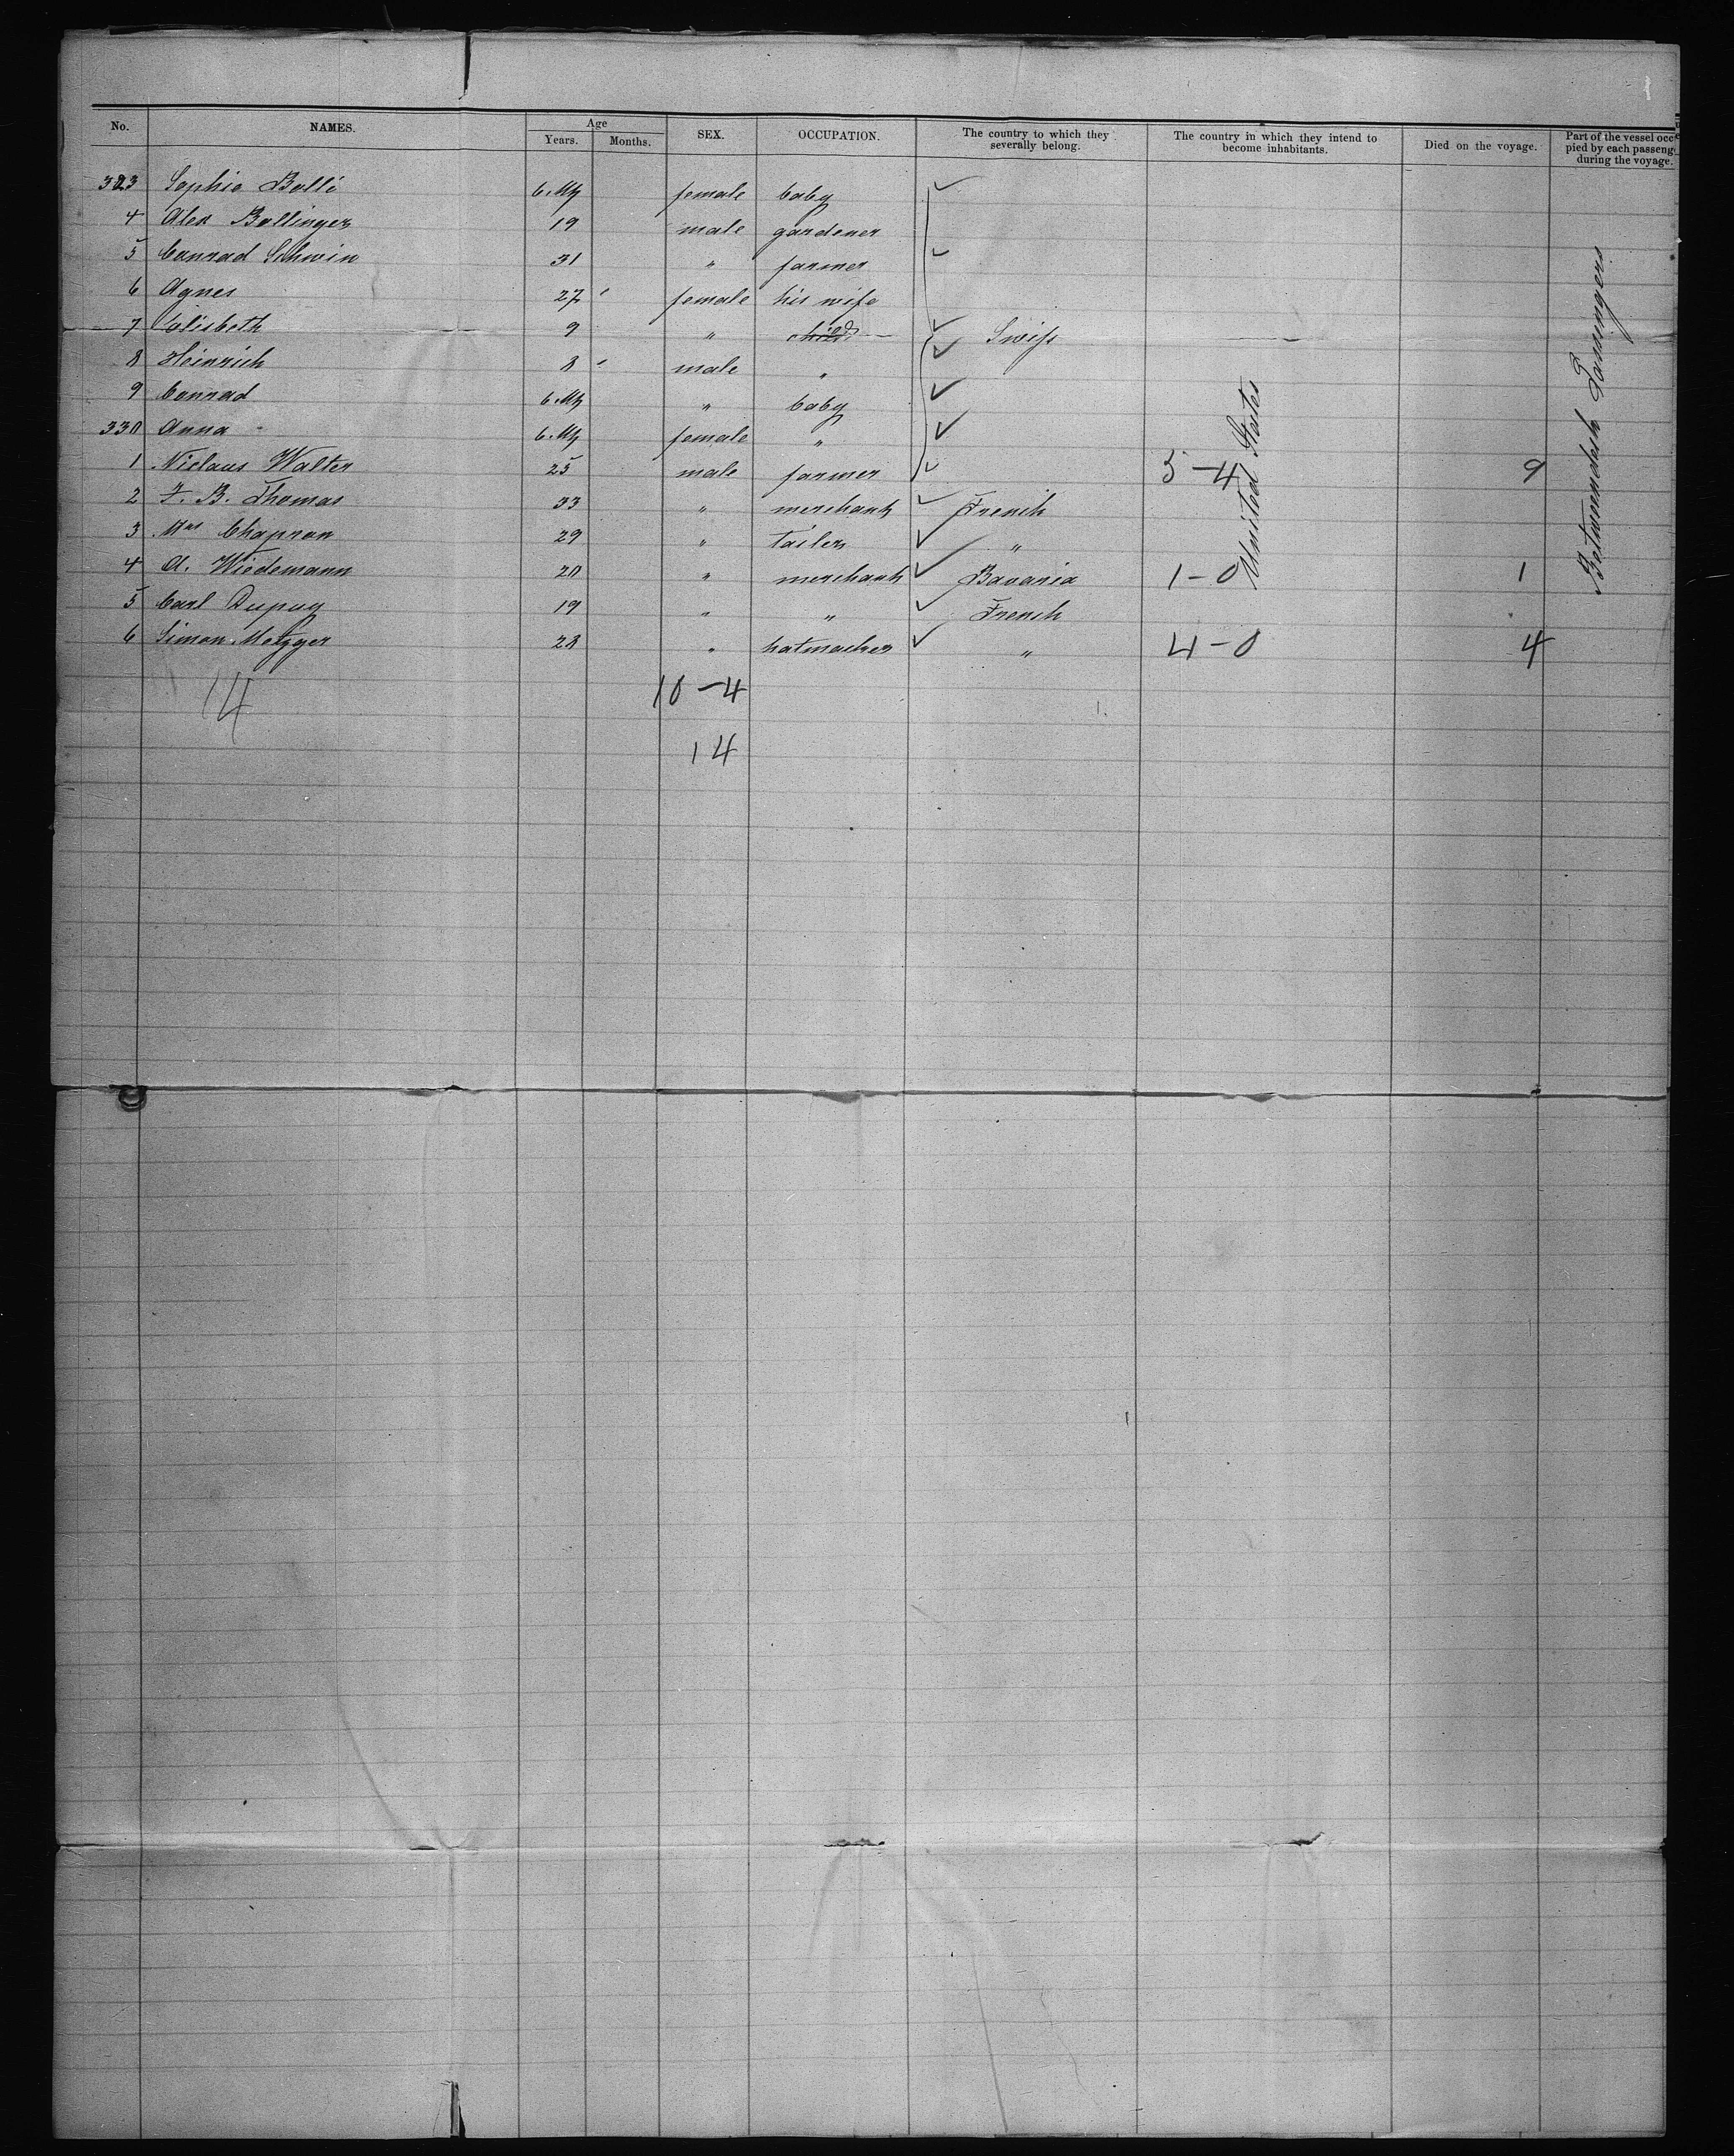 No. NAMES. Age Years. Months. SEX. OCCUPATION. The country to which they severally belong. The country in which they intend to become inhabitants. Died on the voyage. Part of the vessel occupied by each passenger during the voyage.
323 Sophie Bolli 6. Mth female baby
4 Alex Bollinger 19 male gardener
5 Conrad Schwin 31 " farmer
6 Agnes 27 female his wife
7 Elisbeth 9 " child Swiss
8 Heinrich 8 male "
9 Conrad 6. Mth " baby
330 Anna 6. Mth female "
1 Niclaus Walter 25 male farmer 5-4 9
2 F. B. Thomas 33 " merchant French
3 Chapron 29 " tailer "
4 A. Wiedemann 20 " merchant Bavaria 1-0 1
5 Carl Dupuy 19 " " French
6 Simon Metzger 28 " hatmacker " 4-0 4
14 10-4
14
United States
Betweendeck Passengers